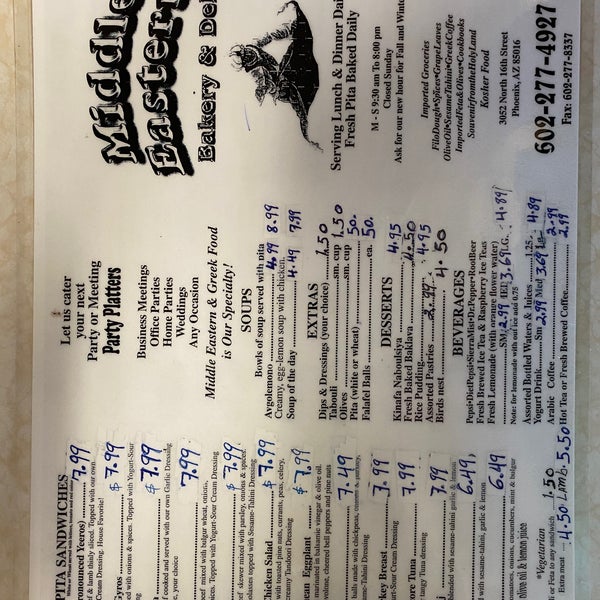 Middle
Eastern
Bakery & Deli
Serving Lunch & Dinner Daily
Fresh Pita Baked Daily
M - S 9:30 am to 8:00 pm
Closed Sunday
Ask for our new hour for Fall and Winter
Imported Groceries
FiloDough•Spices•GrapeLeaves
OliveOil•SesameTahini•GreekCoffee
ImportedFeta&Olives•Cookbooks
SouvenirfromtheHolyLand
Kosher Food
3052 North 16th Street
Phoenix, AZ 85016
602-277-4927
Fax: 602-277-8337
Let us cater
your next
Party or Meeting
Party Platters
Business Meetings
Office Parties
Home Parties
Weddings
Any Occasion
Middle Eastern & Greek Food
is Our Specialty!
SOUPS
Bowls of soup served with pita
Avgolemono 4.99 8.99
Creamy, egg-lemon soup with chicken.
Soup of the day 4.49 7.99
EXTRAS
Dips & Dressings (your choice) 1.50
Tabouli sm. cup 1.50
Olives sm. cup
Pita (white or wheat) 50.
Falafel Balls ea. 50.
DESSERTS
Kinafa Naboulsiya 4.95
Fresh Baked Baklava 4.50
Rice Pudding 4.95
Assorted Pastries
Birds nest 4.50
BEVERAGES
Pepsi•DietPepsi•SierraMist•DrPepper•RootBeer
Fresh Brewed Ice Tea & Raspberry Ice Teas
Fresh Lemonade (with orange flower water)
SM 2.99 MED 3.69 LG. 4.89
Note: for lemonade with out ice add 0.75
Assorted Bottled Waters & Juices 1.25
Yogurt Drink Sm 2.99 Med 3.69 Lg 4.89
Arabic Coffee 2.99
Hot Tea or Fresh Brewed Coffee 2.99
PITA SANDWICHES
(pronounced Yeeros) 7.99
f & lamb thinly sliced. Topped with our own
Dressing. House Favorite!
Gyros $7.99
with onions & spices. Topped with Yogurt-Sour
$7.99
f cooked and served with our own Garlic Dressing
, your choice
7.99
Beef mixed with bulgur wheat, onions,
Topped with Yogurt-Sour Cream Dressing
$7.99
skewer mixed with parsley, onions & spices.
topped with Sesame-Tahini Dressing
Chicken Salad $7.99
with toasted pine nuts, currants, peas, celery,
creamy Tandoori Dressing
Eggplant $7.99
marinated in balsamic vinegar & olive oil.
provolone, cheered bell peppers and pine nuts
7.49
balls made with chickpeas, onions & parsley,
Sesame-Tahini Dressing
Turkey Breast 7.99
Yogurt-Sour Cream Dressing
Tuna 7.99
tangy tuna dressing
7.99
blended with sesame-tahini garlic & lemon
6.49
with sesame-tahini, garlic & lemon
6.49
tomatoes, onions, cucumbers, mint & bulgur
olive oil & lemon juice
*Vegetarian
or Feta to any sandwich 1.50
Extra meat 4.50 Lamb 5.50